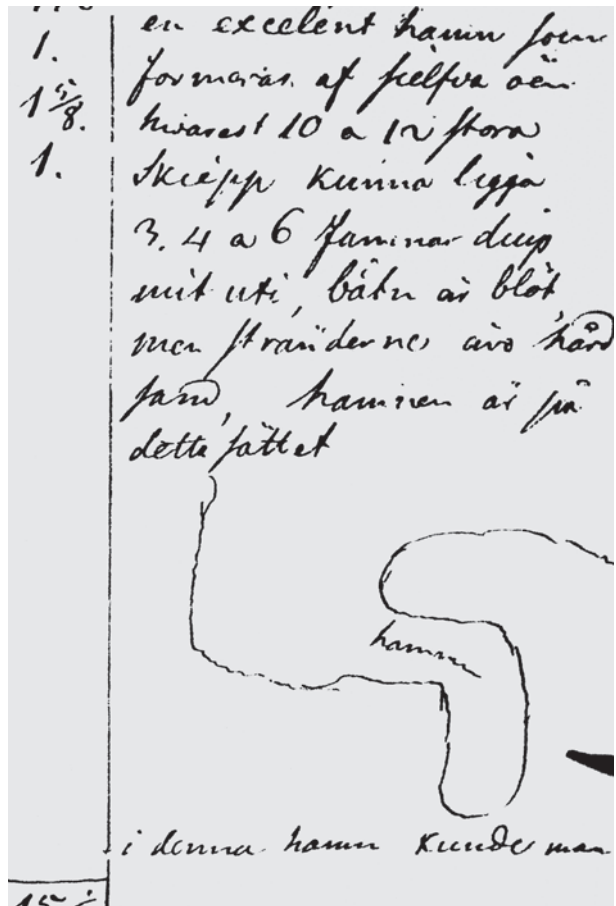 1.
1 5/8.
1.
en excelent hamn som
formeras af sielfva öen
hvarest 10 a 12 stora
Skiepp kunna ligga
3. 4 a 6 famnar diup
mit uti, båtn är blöt
men strändernes äro hård
sand, hamnen är på
detta sättet
hamn
i denna hamn kunde man